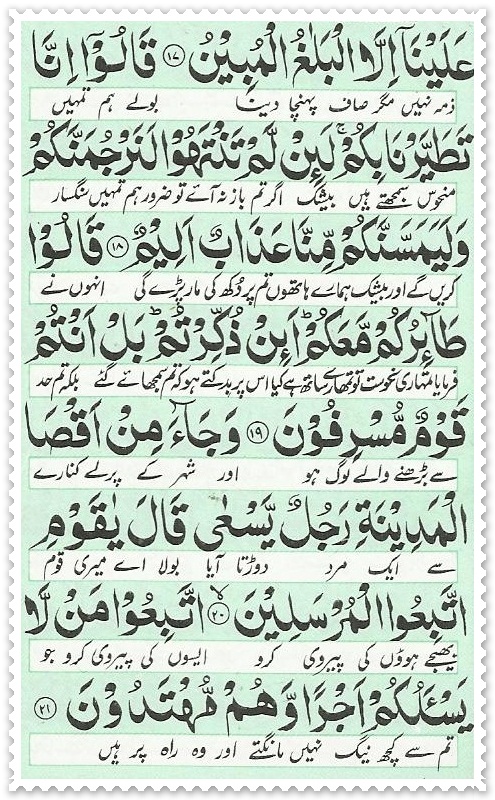 عَلَيْنَاۤ اِلَّا الْبَلٰغُ الْمُبِيْنُ ﴿۱۷﴾ قَالُوْۤا اِنَّا
ذمہ نہیں مگر صاف پہنچا دینا بولے ہم تمہیں
تَطَيَّرْنَا بِكُمْ ۚ لَئِنْ لَّمْ تَنْتَهُوْا لَنَرْجُمَنَّكُمْ
منحوس سمجھتے ہیں بیشک اگر تم باز نہ آئے تو ضرور ہم تمہیں سنگسار
وَلَيَمَسَّنَّكُمْ مِّنَّا عَذَابٌ اَلِيْمٌ ﴿۱۸﴾ قَالُوْا
کریں گے اور بیشک ہمارے ہاتھوں تم پر دُکھ کی مار پڑے گی انہوں نے
طَآئِرُكُمْ مَّعَكُمْ ؕ اَئِنْ ذُكِّرْتُمْ ؕ بَلْ اَنْتُمْ
فرمایا تمہاری نحوست تو تمہارے ساتھ ہے کیا اس پر بدکتے ہو کہ تم سمجھائے گئے بلکہ تم حد
قَوْمٌ مُّسْرِفُوْنَ ﴿۱۹﴾ وَجَآءَ مِنْ اَقْصَا
سے بڑھنے والے لوگ ہو اور شہر کے پرلے کنارے
الْمَدِيْنَةِ رَجُلٌ يَّسْعٰى قَالَ يٰقَوْمِ
سے ایک مرد دوڑتا آیا بولا اے میری قوم
اتَّبِعُوا الْمُرْسَلِيْنَ ﴿۲۰﴾ اتَّبِعُوْا مَنْ لَّا
بھیجے ہوؤں کی پیروی کرو ایسوں کی پیروی کرو جو
يَسْـَٔلُكُمْ اَجْرًا وَّهُمْ مُّهْتَدُوْنَ ﴿۲۱﴾
تم سے کچھ نیگ نہیں مانگتے اور وہ راہ پر ہیں